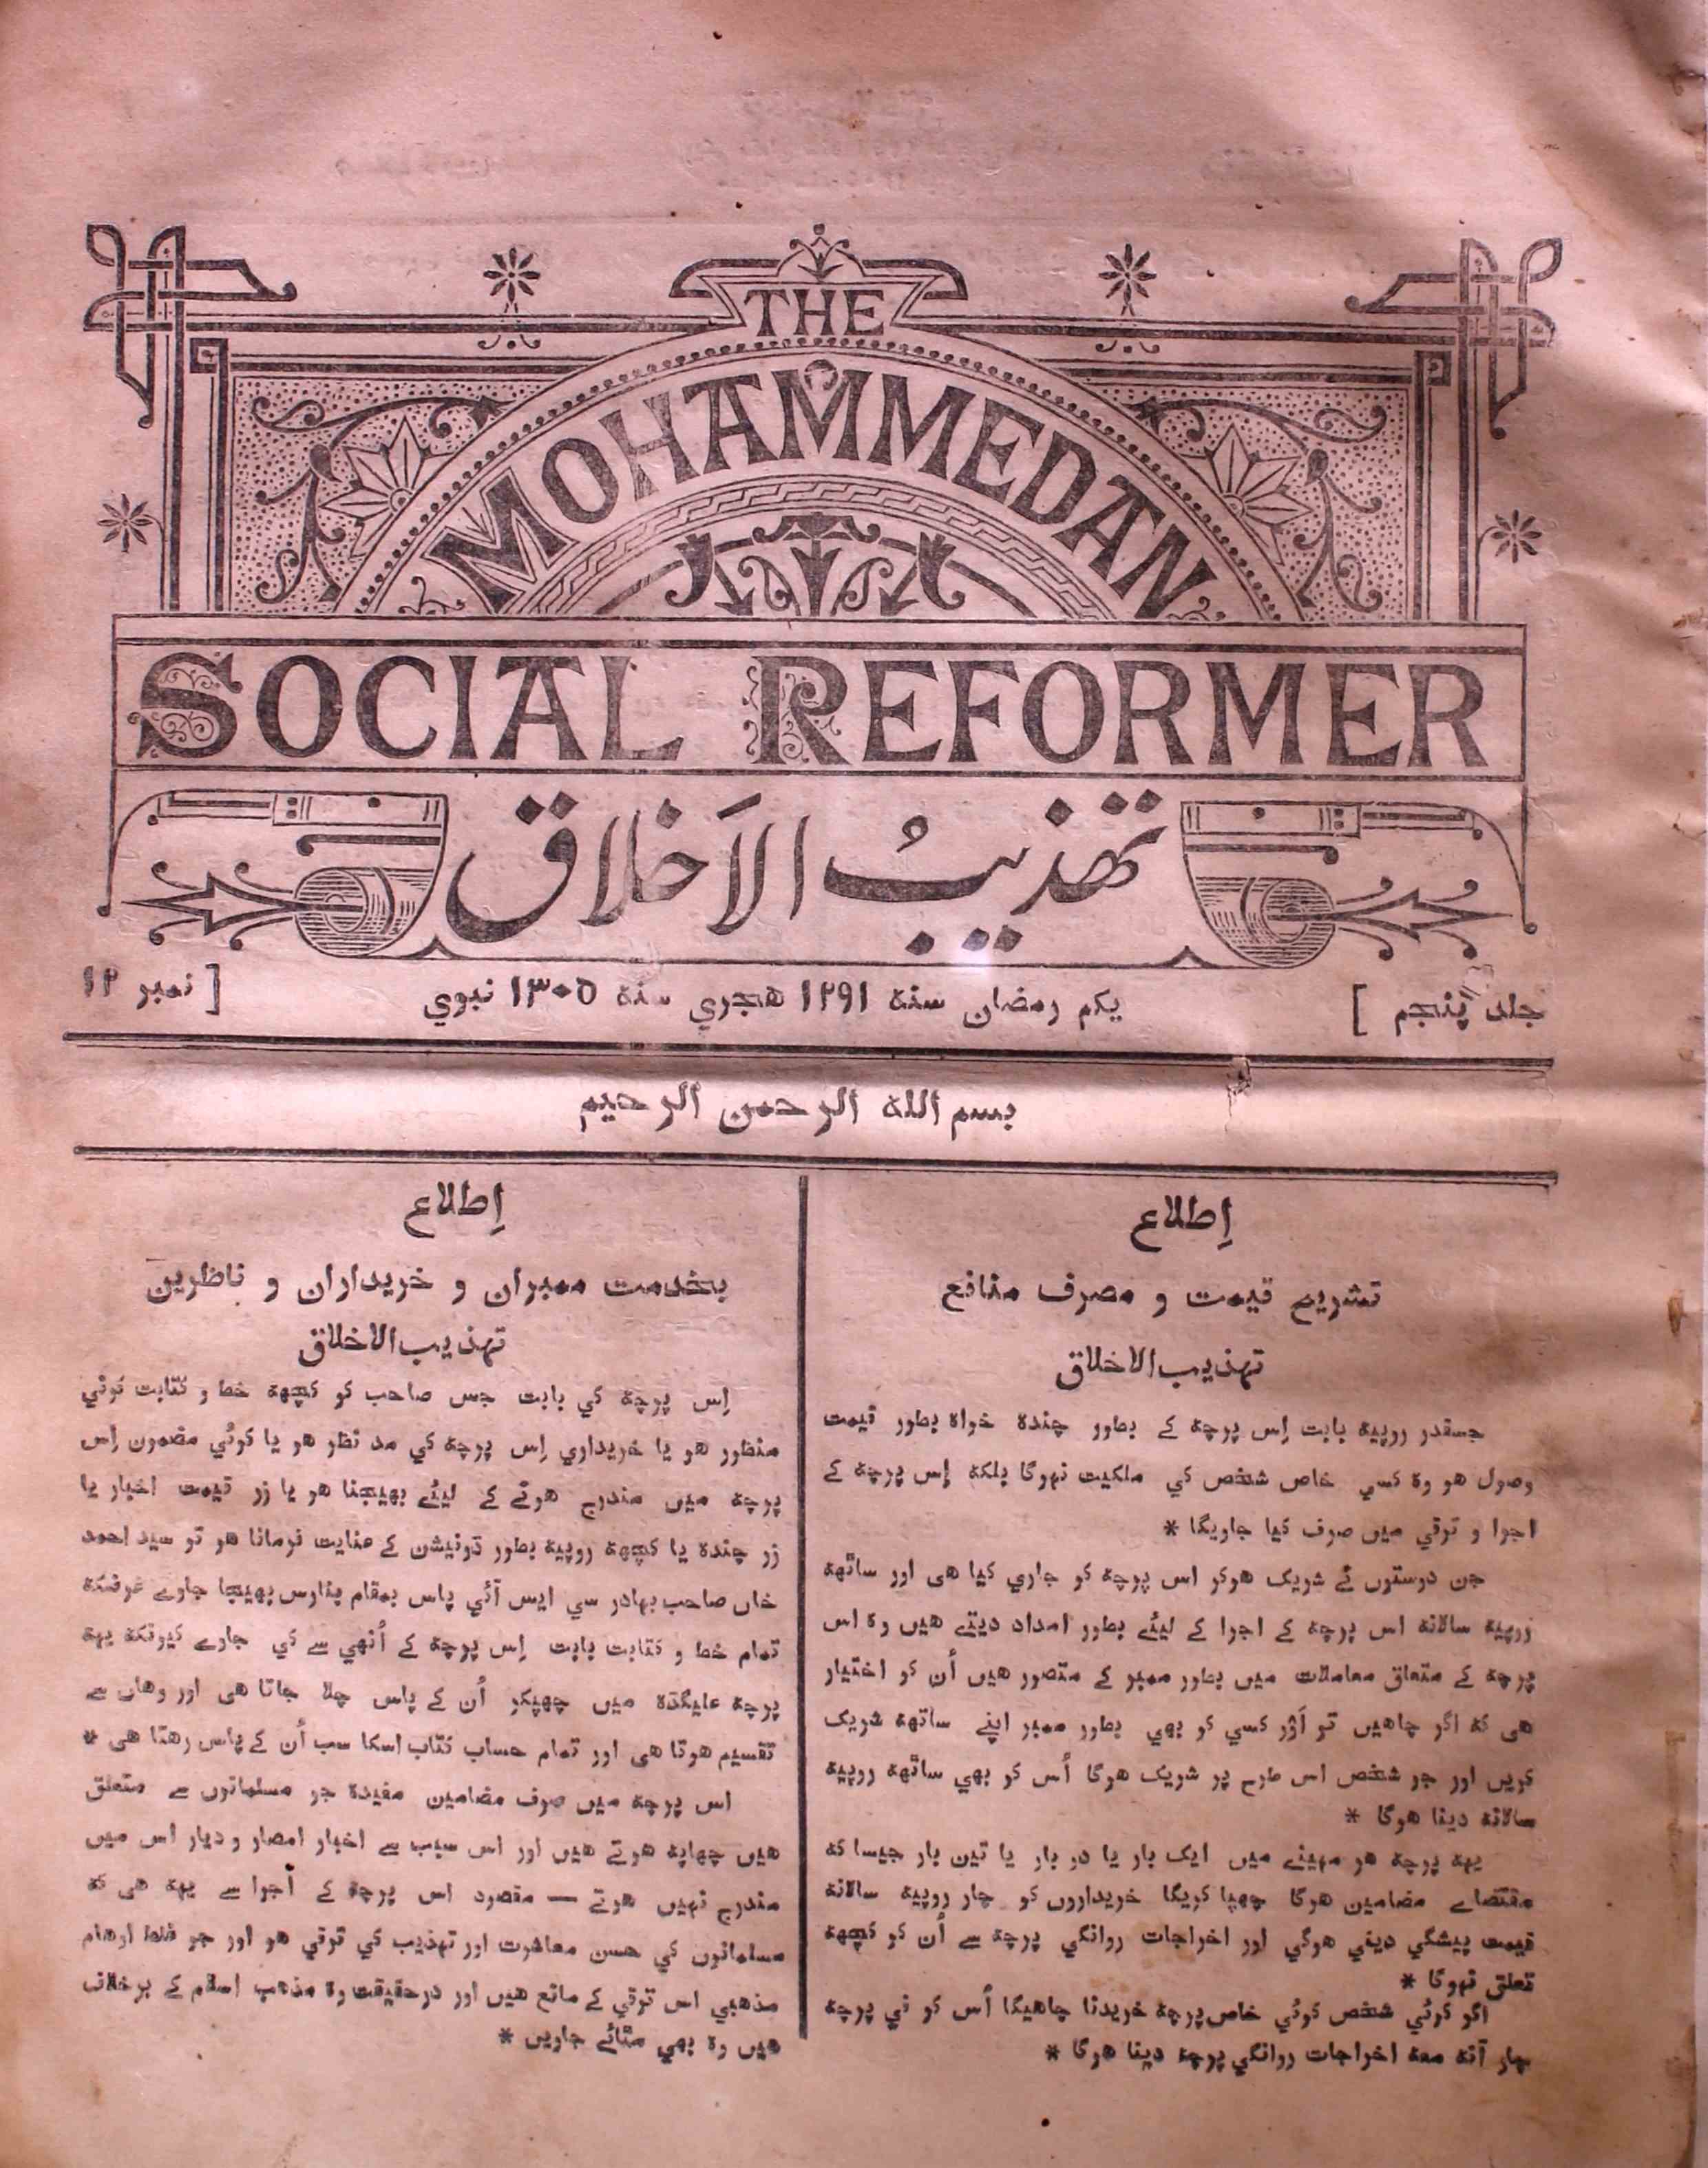 THE
MOHAMMEDAN
SOCIAL REFORMER
تهذیبُ الاَخلاق
جلد پنجم ]
یکم رمضان سنہ ۱۲۹۱ هجري سنہ ۱۳۰۵ نبوي
[ نمبر ۱۲
بسم اللہ الرحمن الرحیم
اِطلاع
تشریح قیمت و مصرف منافع
تهذیب الاخلاق
جسقدر روپیہ بابت اِس پرچہ کے بطور چندہ خواہ بطور قیمت
وصول هو وہ کسي خاص شخص کي ملکیت نہوگا بلکہ اِس پرچہ کے
اجرا و ترقي میں صرف کیا جاویگا *
جن دوستوں نے شریک هوکر اس پرچہ کو جاري کیا هی اور ساٹهہ
روپیہ سالانہ اس پرچہ کے اجرا کے لیئے بطور امداد دیتے هیں وہ اس
پرچہ کے متعلق معاملات میں بطور ممبر کے متصور هیں اُن کو اختیار
هی کہ اگر چاهیں تو اَوْر کسي کو بهي بطور ممبر اپنے ساتهہ شریک
کریں اور جو شخص اس طرح پر شریک هوگا اُس کو بهي ساٹهہ روپیہ
سالانہ دینا هوگا *
یہہ پرچہ هر مہینے میں ایک بار یا دو بار یا تین بار جیسا کہ
مقتضاے مضامین هوگا چهپا کریگا خریداروں کو چار روپیہ سالانہ
قیمت پیشگي دیني هوگي اور اخراجات روانگي پرچہ سے اُن کو کچهہ
تعلق نہوگا *
اگر کوئي شخص کوئي خاص پرچہ خریدنا چاهیگا اُس کو في پرچہ
چار آنہ معہ اخراجات روانگي پرچہ دینا هوگا *
اِطلاع
بخدمت ممبران و خریداران و ناظرین
تهذیب الاخلاق
اِس پرچہ کي بابت جس صاحب کو کچهہ خط و کتابت کرني
منظور هو یا خریداري اِس پرچہ کي مد نظر هو یا کوئي مضمون اِس
پرچہ میں مندرج هونے کے لیئے بهیجنا هو یا زر قیمت اخبار یا
زر چندہ یا کچهہ روپیہ بطور ڈونیشن کے عنایت فرمانا هو تو سید احمد
خاں صاحب بہادر سي ایس آئي پاس بمقام بنارس بهیجا جاوے غرضکہ
تمام خط و کتابت بابت اِس پرچہ کے اُنهي سے کي جاوے کیونکہ یہہ
پرچہ علیگڈہ میں چهپکر اُن کے پاس چلا جاتا هی اور وهاں سے
تقسیم هوتا هی اور تمام حساب کتاب اسکا سب اُن کے پاس رهتا هی *
اس پرچہ میں صرف مضامین مفیدہ جو مسلمانوں سے متعلق
هیں چهاپہ هوتے هیں اور اس سبب سے اخبار امصار و دیار اس میں
مندرج نہیں هوتے — مقصود اس پرچہ کے اجرا سے یہہ هی کہ
مسلمانوں کي حسن معاشرت اور تهذیب کي ترقي هو اور جو غلط اوهام
مذهبي اس ترقي کے مانع هیں اور درحقیقت وہ مذهب اسلام کے برخلاف
هیں وہ بهي مٹائے جاویں *